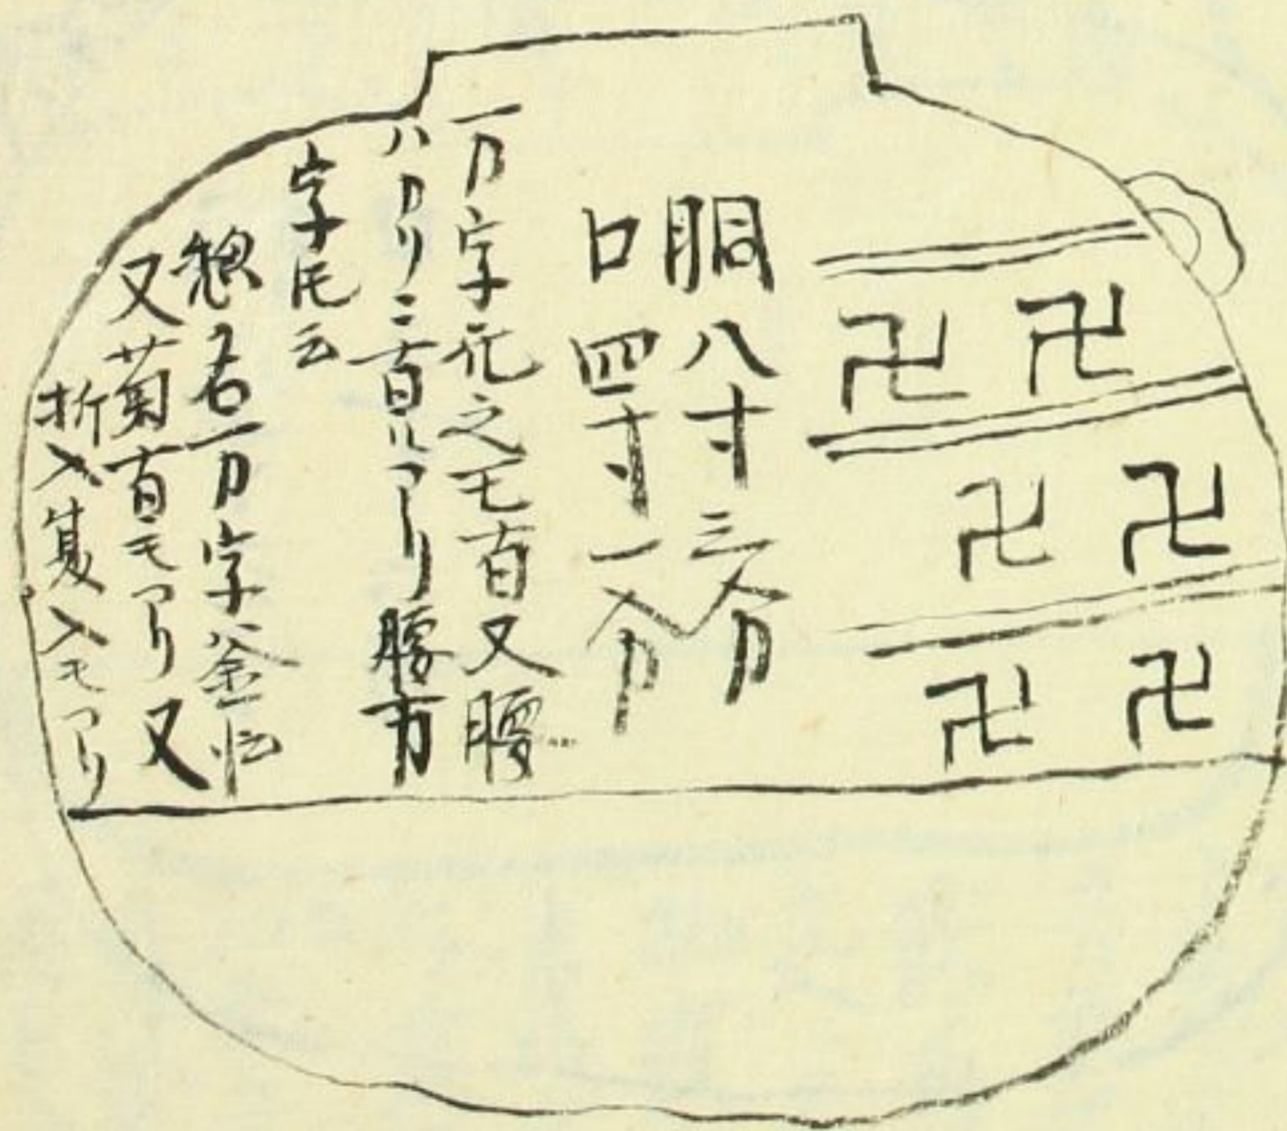 卍卍
卍卍
卍卍
胴八寸三分
口四寸一分
一万字花之モ有又腰
ハカリニ有ルアリ腰万
字トモ云
惣名万字釜ト云
又菊有モアリ又
折入寞入モアリ